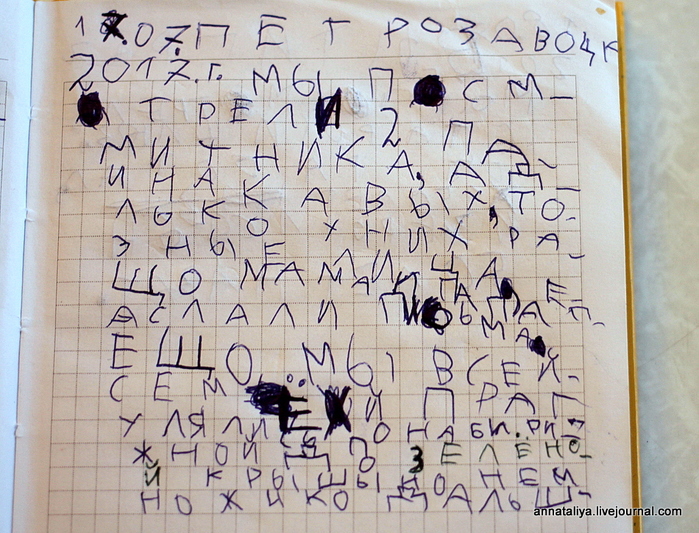 17.07. ПЕТРОЗАВОЦК
2017.г. МЫ П СМ-
ТРЕЛИ 2 ПА-
МИТНИКА, АД-
ИНАКАВЫХ, ТО-
ЛЬКО ХНИХ РА-
ЗНЫЕ ЛИЦА,
ЩО МАМА И ПАПА Е-
АСЛАЛИ ПИ ЬМА. П-
ЕЩО МЫ ВСЕЙ-
СЕМ ЁЙ ПРАГ-
УЛЯЛИ ПО НАБИ.РИ-
ЖНОЙ ЗЕЛЕНО-
Й КРЫ НЕМ-
НОЖИКО ДАЛЬШ-
annataliya.livejournal.com